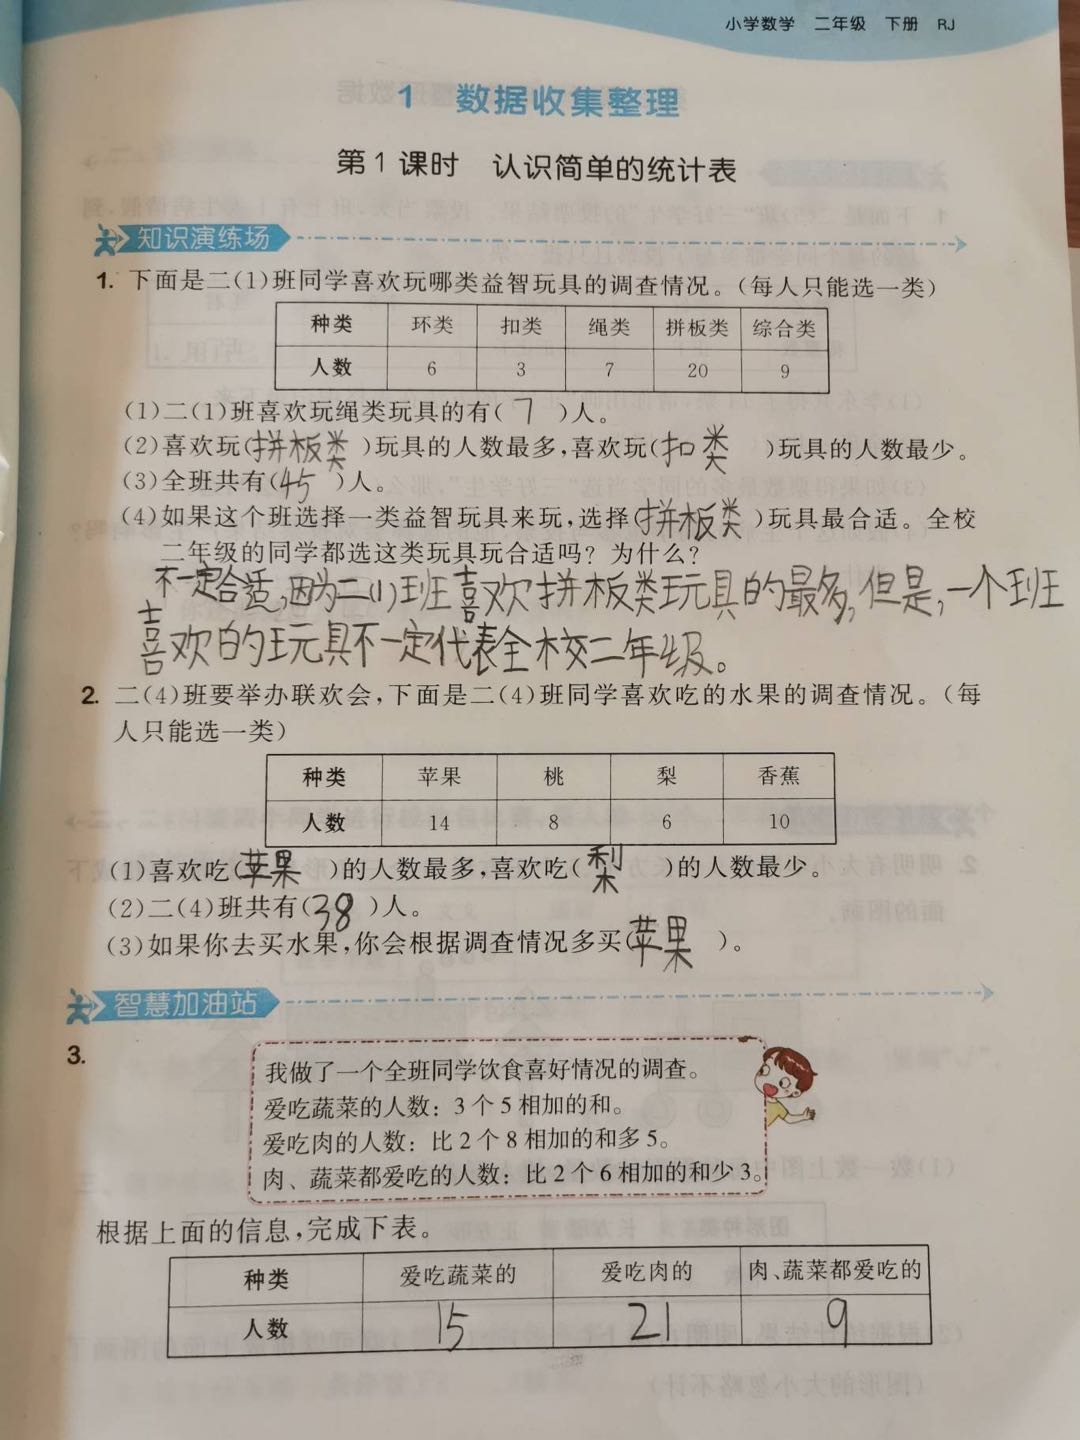 小学数学 二年级 下册 RJ
1 数据收集整理
第1课时 认识简单的统计表
知识演练场
1. 下面是二(1)班同学喜欢玩哪类益智玩具的调查情况。(每人只能选一类)
种类 环类 扣类 绳类 拼板类 综合类
人数 6 3 7 20 9
(1)二(1)班喜欢玩绳类玩具的有(7)人。
(2)喜欢玩(拼板类)玩具的人数最多,喜欢玩(扣类)玩具的人数最少。
(3)全班共有(45)人。
(4)如果这个班选择一类益智玩具来玩,选择(拼板类)玩具最合适。全校
二年级的同学都选这类玩具玩合适吗？为什么？
不一定合适,因为二(1)班喜欢拼板类玩具的最多,但是,一个班
喜欢的玩具不一定代表全校二年级。
2. 二(4)班要举办联欢会,下面是二(4)班同学喜欢吃的水果的调查情况。(每
人只能选一类)
种类 苹果 桃 梨 香蕉
人数 14 8 6 10
(1)喜欢吃(苹果)的人数最多,喜欢吃(梨)的人数最少。
(2)二(4)班共有(38)人。
(3)如果你去买水果,你会根据调查情况多买(苹果)。
智慧加油站
3.
我做了一个全班同学饮食喜好情况的调查。
爱吃蔬菜的人数：3个5相加的和。
爱吃肉的人数：比2个8相加的和多5。
肉、蔬菜都爱吃的人数：比2个6相加的和少3。
根据上面的信息,完成下表。
种类 爱吃蔬菜的 爱吃肉的 肉、蔬菜都爱吃的
人数 15 21 9